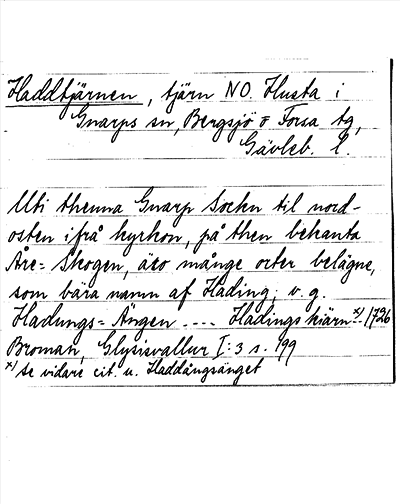 Haddtjärnen, tjärn NO. Husta i
Gnarps sn, Bergsjö o Forsa tg,
Gävleb. l.
Uti thenna Gnarp Sockn til nord-
osten ifrå kyrkon, på then bekanta
Åre-Skogen, äro många orter belägne,
som bära namn af Hading; v. g.
Hadungs-Ängen .... Hadings kiärn x) /1726
Broman, Glysisvallur I:3 s. 199
x) se vidare cit. u. Haddångsänget